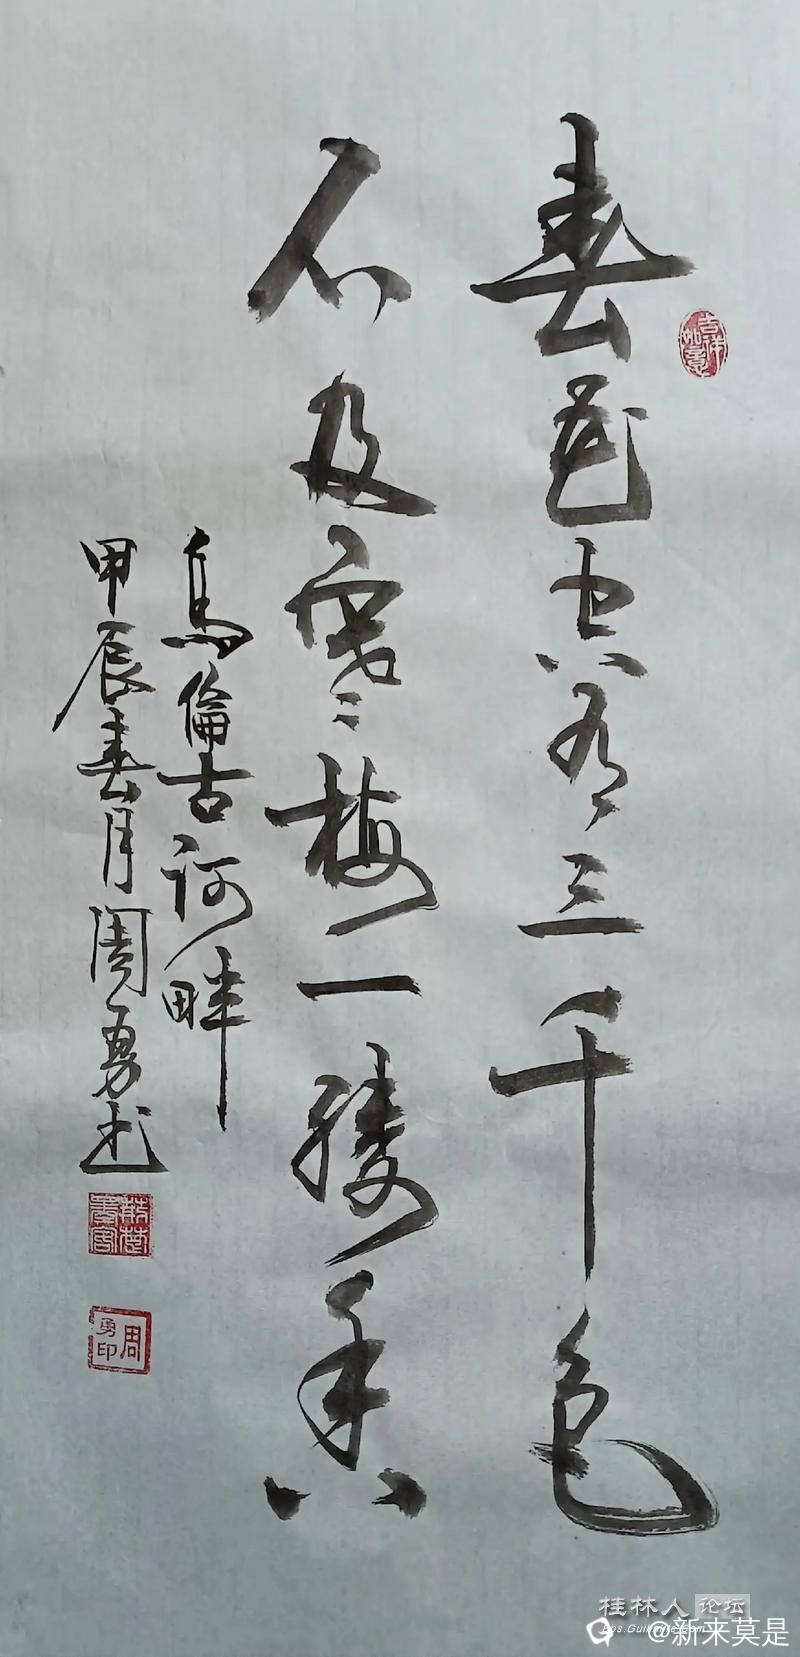 春花空有三千色
不及寒梅一缕香
烏倫古河畔
甲辰春月周勇书
吉祥如意
周勇印
桂林人论坛
bbs.Guilinlife.com
@新来莫是